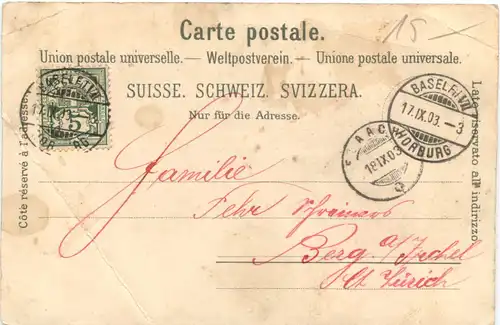 Carte postale.
15 x
Union postale universelle. — Weltpostverein. — Unione postale universale.
SUISSE. SCHWEIZ. SVIZZERA.
Nur für die Adresse.
Côté réservé à l'adresse.
Lato riservato all' indirizzo.
5
HORBURG
17.IX.03. –3
HORBURG
18.IX.03
Familie
Fehr Schreiners
Berg a/Irchel
Ct. Zürich